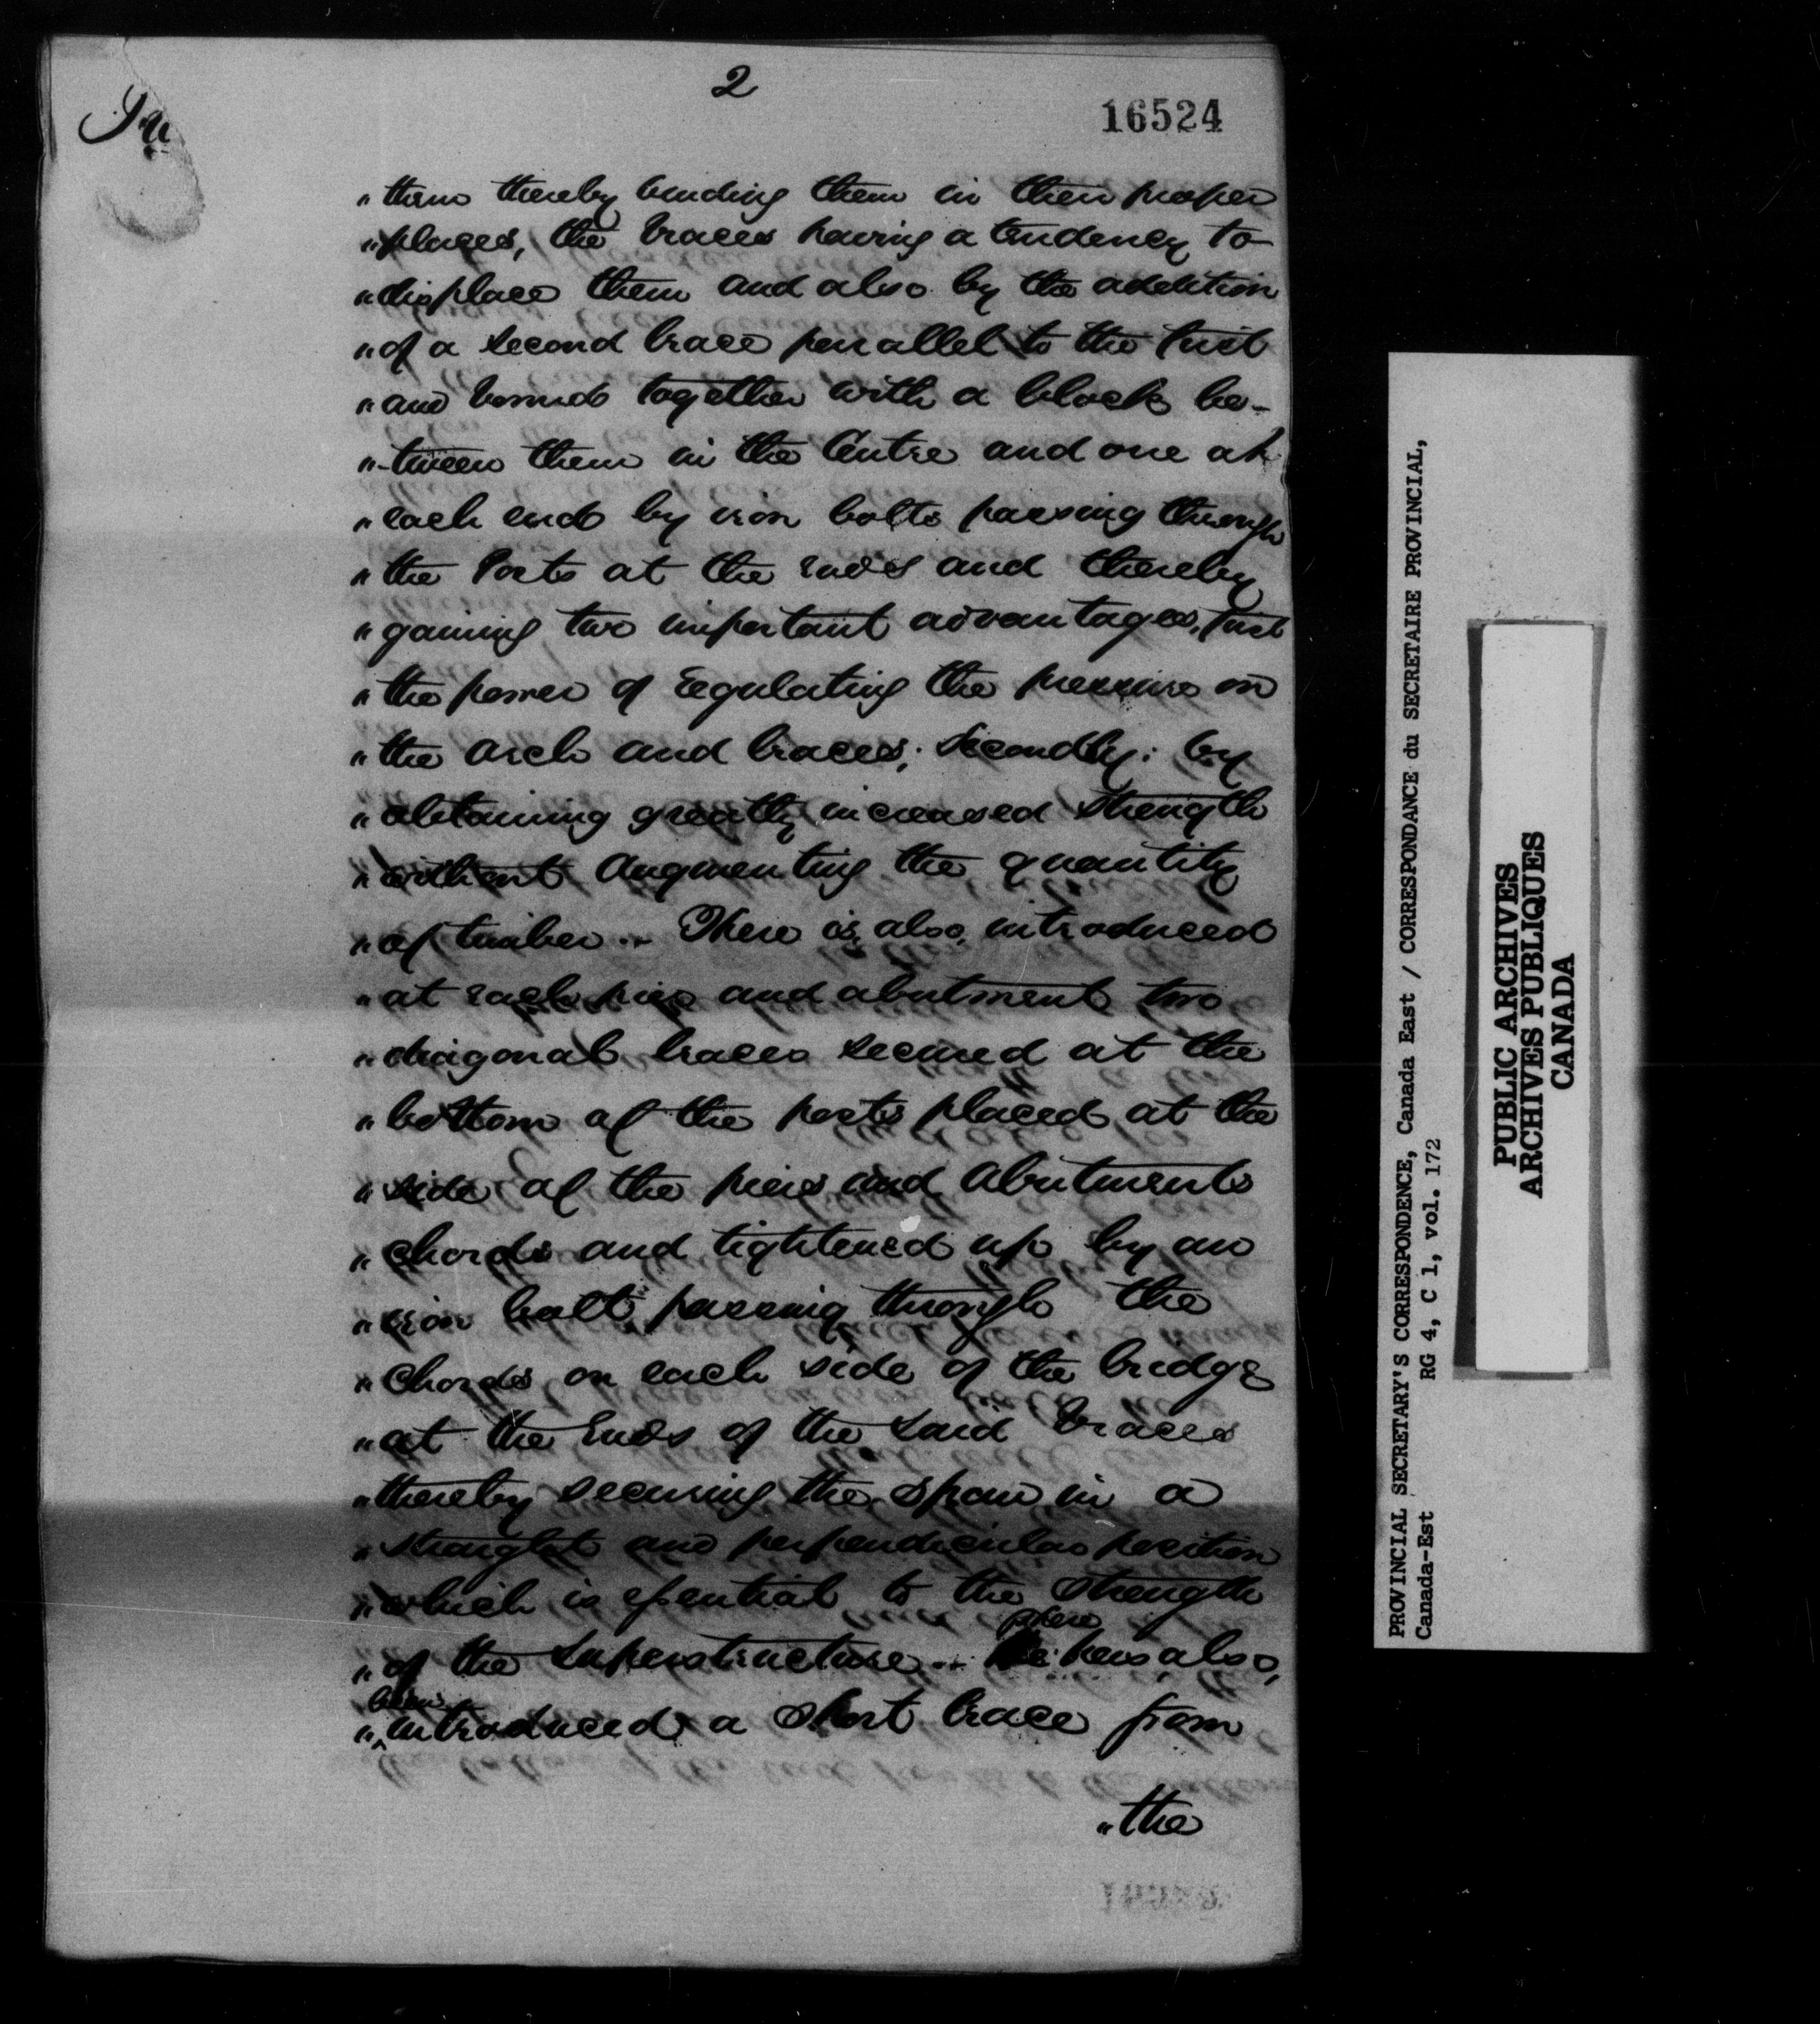 2
16524
" them thereby binding them in their proper
" places, the braces having a tendency to
" displace them and also by the addition
" of a second brace parallel to the first
" and bound together with a block be-
"-tween them in the Centre and one at
" each end by iron bolts passing through
" the Posts at the ends and thereby
" gaining two important advantages, first
" the power of regulating the pressure on
" the arch and braces; Secondly: by
" obtaining greatly increased strength
" without augmenting the quantity
" of timber.. There is, also, introduced
" at each pier and abutment two
" diagonal braces secured at the
" bottom of the posts placed at the
" side of the piers and abutments
" chords and tightened up by an
" iron bolt, passing through the
" chords on each side of the bridge
" at the Ends of the said braces
" thereby securing the span in a
" straight and perpendicular position
" which is essential to the strength
there
" of the Superstructure.. has also,
been
" introduced a short brace from
" the
PROVINCIAL SECRETARY'S CORRESPONDENCE, Canada East / CORRESPONDANCE du SECRETAIRE PROVINCIAL,
Canada-Est RG 4, C 1, vol. 172
PUBLIC ARCHIVES
ARCHIVES PUBLIQUES
CANADA